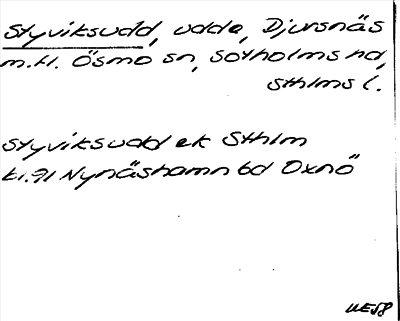 Styviksudd, udde, Djursnäs
m.fl. Ösmo sn, Sotholms hd,
Sthlms l.
Styviksudd ek Sthlm
bl. 91 Nynäshamn 6d Oxnö
WE58